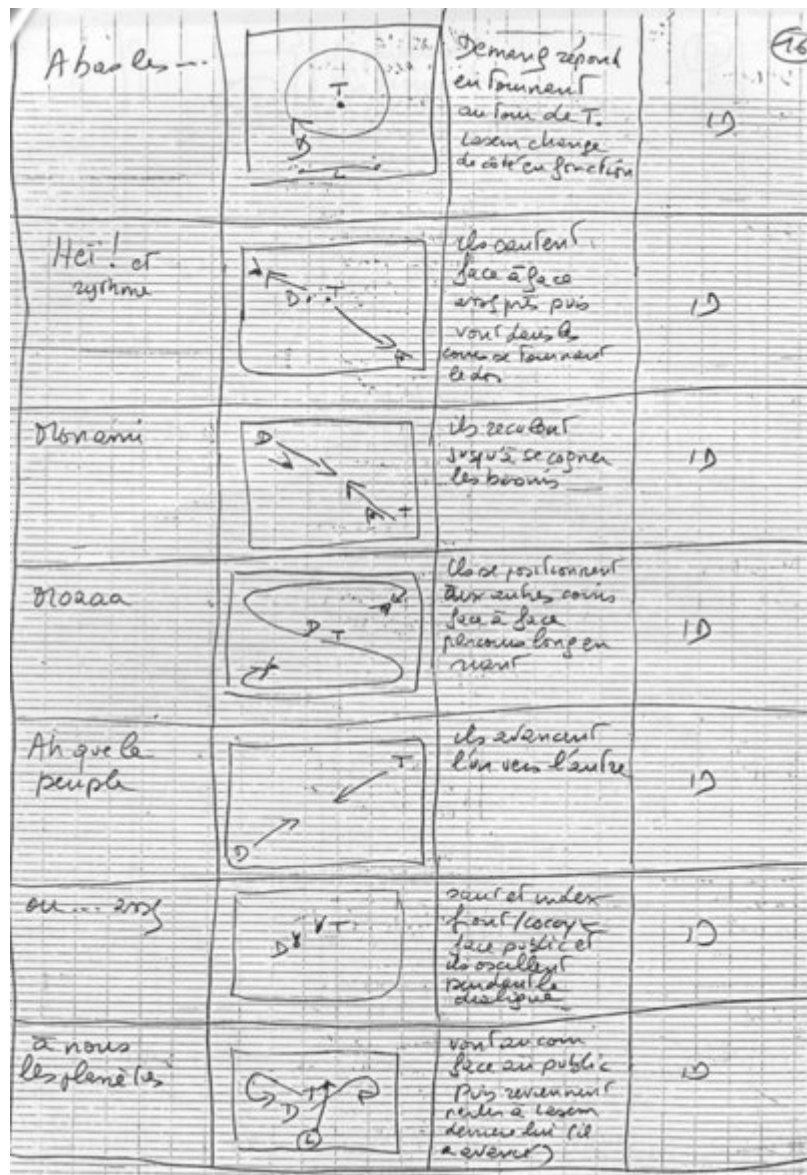 16
A bas les ...
T
D
L
Demang répond
en tournant
autour de T.
Lasem change
de côté en fonction
ID
Heï! et
rythme
D T
ils sautent
face à face
puis
vont dans les
coins se tournant
le dos
ID
Mon ami
D
T
ils reculent
jusqu'à se cogner
les
ID
Moaaa
D T
Ils se positionnent
aux autres coins
face à face
parcours long en
riant
ID
Ah que le
peuple
T
D
ils avancent
l'un vers l'autre
ID
ou ...
D T
saut et index
front /
face public et
ils oscillent
pendant le
dialogue
ID
à nous
les planètes
T
D
L
vont au coin
face au public
puis reviennent
à Lasem
derrière lui (il
a avancé)
ID